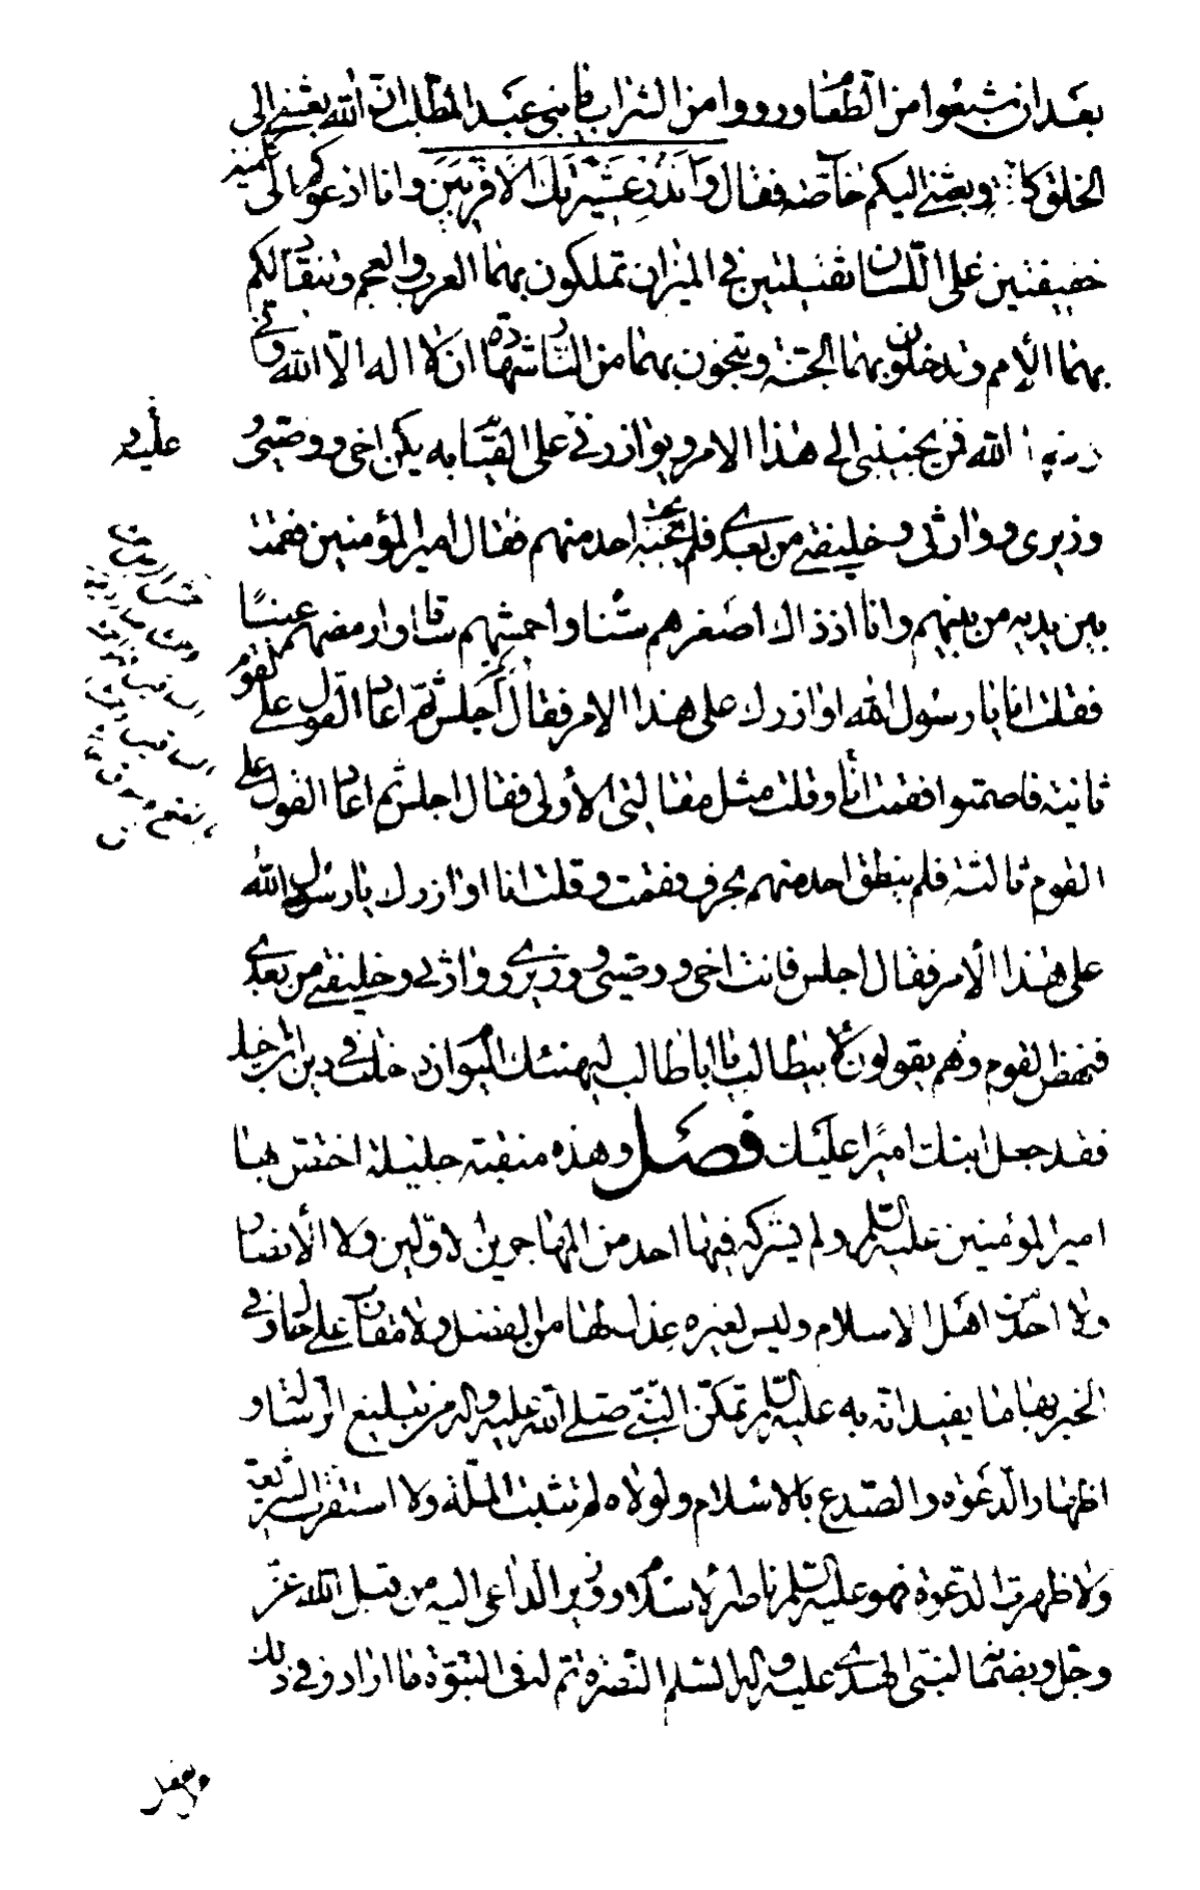 بعد ان شبعوا من الطعام ورووا من الشراب يا بنى عبد المطلب ان الله بعثنى الى
الخلق كافة وبعثنى اليكم خاصة فقال وانذر عشيرتك الاقربين وانا ادعوكم الى كلمتين
خفيفتين على اللسان ثقيلتين فى الميزان تملكون بهما العرب والعجم وتنقاد لكم
بهما الامم وتدخلون بهما الجنة وتنجون بهما من النار شهادة ان لا اله الا الله وانى
رسول الله فمن يجيبنى الى هذا الامر ويوازرنى على القيام به يكن اخى ووصيى و
عليه
وزيرى ووارثى وخليفتى من بعدى فلم يجبه احد منهم فقال امير المؤمنين فقمت
بين يديه من بينهم وانا اذ ذاك اصغرهم سنا واحمشهم ساقا وارمضهم عينا
فقلت انا يا رسول الله اوازرك على هذا الامر فقال اجلس ثم اعاد القول على القوم
ثانية فاصمتوا فقمت انا وقلت مثل مقالتى الاولى فقال اجلس ثم اعاد القول على
القوم ثالثة فلم ينطق احد منهم بحرف فقمت وقلت انا اوازرك يا رسول الله
على هذا الامر فقال اجلس فانت اخى ووصيى ووزيرى ووارثى وخليفتى من بعدى
فنهض القوم وهم يقولون لابيطالب يا ابا طالب ليهنئك اليوم ان دخلت فى دين ابن اخيك
فقد جعل ابنك اميرا عليك فصل وهذه منقبة جليلة اختص بها
امير المؤمنين عليه السلم ولم يشركه فيها احد من المهاجرين الاولين ولا الانصار
ولا احد من اهل الاسلام وليس لغيره عدل لها من الفضل ولا مقارب على حال وفى
الخبر بها ما يفيد انه به عليه السلم تمكن النبى صلى الله عليه واله من تبليغ الرسالة و
اظهار الدعوة والصدع بالاسلام ولولاه لم تثبت الملة ولا استقرت الشريعة
ولا ظهرت الدعوة فهو عليه السلم ناصر الاسلام ووزير الداعى اليه من قبل الله عز
وجل وبضمانه لنبى الهدى عليه واله السلم النصرة تم له فى النبوة ما اراد وفى ذلك